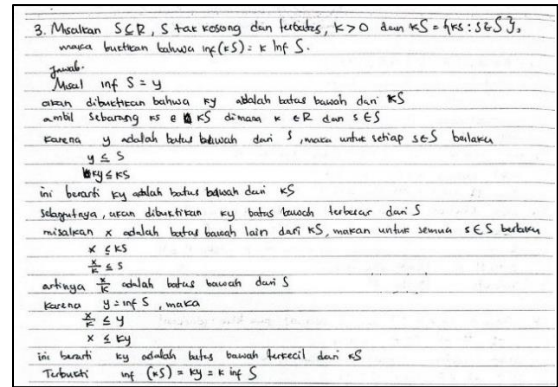 3. Misalkan S⊆R, S tak kosong dan terbatas, k>0 dan kS = {ks : s∈S},
maka buktikan bahwa inf(kS) = k Inf S.
Jawab.
Misal inf S = y
akan dibuktikan bahwa ky adalah batas bawah dari kS
ambil sebarang ks ∈ kS dimana k ∈R dan s ∈S
karena y adalah batas bawah dari S, maka untuk setiap s∈S berlaku
y ≤ S
ky ≤ ks
ini berarti ky adalah batas bawah dari kS
Selanjutnya, akan dibuktikan ky batas bawah terbesar dari S
misalkan x adalah batas bawah lain dari kS, makan untuk semua s∈S berlaku
x ≤ ks
x/k ≤ s
artinya x/k adalah batas bawah dari S
karena y = inf S, maka
x/k ≤ y
x ≤ ky
ini berarti ky adalah batas bawah terkecil dari kS
Terbukti inf (kS) = ky = k inf S